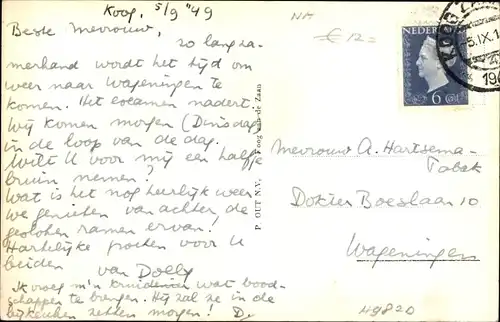 Koog, 5/9 '49
Beste Mevrouw,
zo langza-
merhand wordt het tijd om
weer naar Wageningen te
komen. Het examen nadert.
Wij komen morgen (Dinsdag)
in de loop van de dag.
Wilt U voor mij een halfje
bruin nemen?
Wat is het nog heerlijk weer
we genieten van achter de
gesloten ramen ervan!
Hartelijke groeten voor U
beiden
van Dolly
Ik vroeg m'n kruidenier wat bood-
schappen te brengen. Hij zal ze in de
bijkeuken zetten morgen! D.
P. OUT N.V. Koog aan de Zaan
€ 12=
NEDERLAND
6
5.IX.1
194
Mevrouw A. Hartsema-
Tabak
Dokter Boeslaan 10
Wageningen
49820